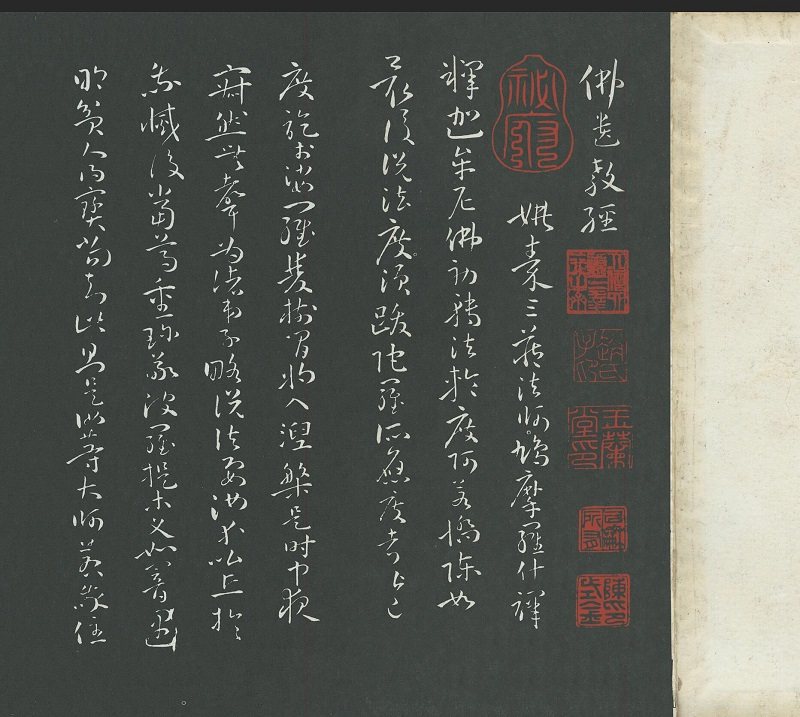 佛遺教經
祕府
姚秦三藏法師鳩摩羅什譯
釋迦牟尼佛初轉法輪度阿若憍陳如
最後說法度須跋陀羅所應度者皆已
度訖於娑羅雙樹間將入涅槃是時中夜
寂然無聲為諸弟子略說法要汝等比丘於
我滅後當尊重珍敬波羅提木叉如闇遇
明貧人得寶當知此則是汝等大師若我住
趙氏子昂
玉蘭堂印